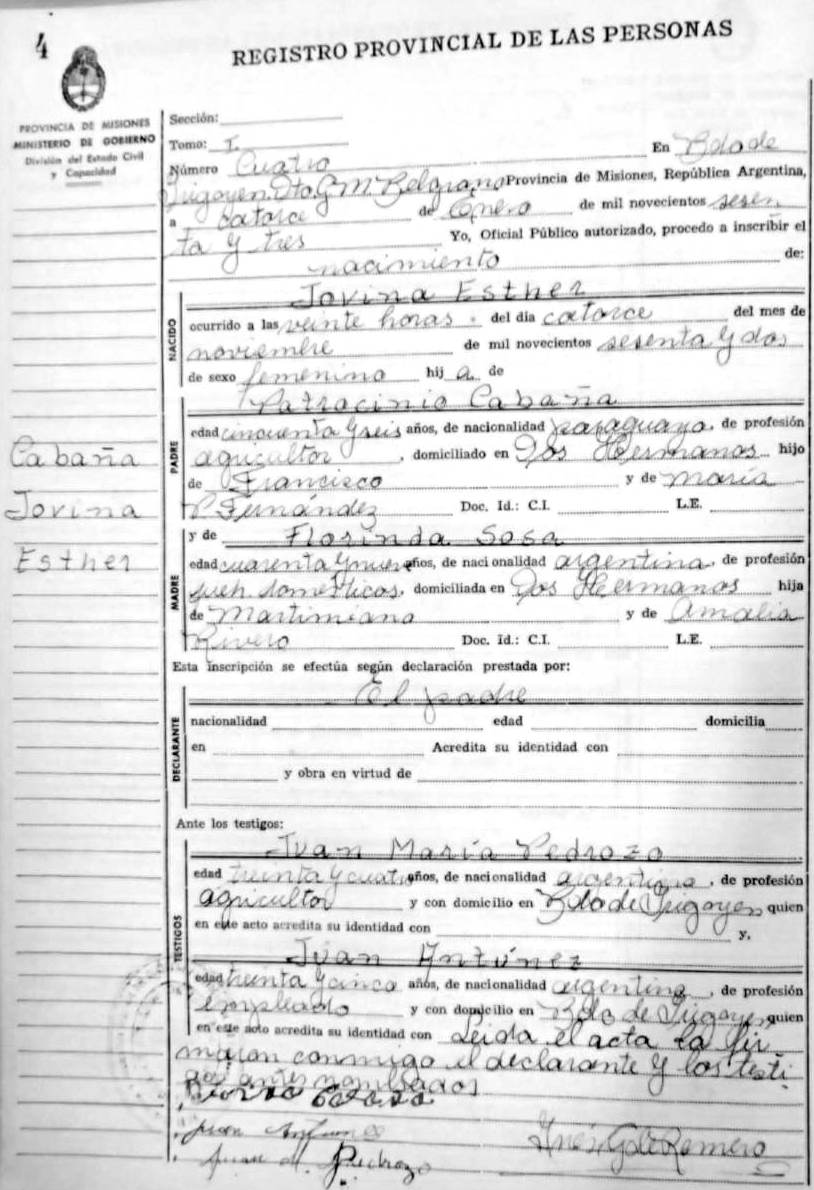 4
REGISTRO PROVINCIAL DE LAS PERSONAS
PROVINCIA DE MISIONES
MINISTERIO DE GOBIERNO
División del Estado Civil
y Capacidad
Sección:
Tomo: I.
En Bdo de
Número Cuatro
Irigoyen. Dto. G. M. Belgrano Provincia de Misiones, República Argentina,
a catorce de Enero de mil novecientos sesen
ta y tres Yo, Oficial Público autorizado, procedo a inscribir el
nacimiento de:
NACIDO
Jovina Esther
ocurrido a las veinte horas. del día catorce del mes de
noviembre de mil novecientos sesenta y dos
de sexo femenino hij a de
PADRE
Patrocinio Cabaña
edad cincuenta y seis años, de nacionalidad paraguaya, de profesión
agricultor, domiciliado en Dos Hermanos hijo
de Francisco y de María
P. Fernández Doc. Id.: C.I. L.E.
Cabaña
Jovina
Esther
MADRE
y de Florinda Sosa
edad cuarenta y nueve años, de nacionalidad argentina, de profesión
domésticos, domiciliada en Dos Hermanos hija
de Martimiano y de Amalia
Rivero Doc. Id.: C.I. L.E.
Esta inscripción se efectúa según declaración prestada por:
DECLARANTE
El padre
nacionalidad edad domicilia
en Acredita su identidad con
y obra en virtud de
Ante los testigos:
TESTIGOS
Juan María Pedrozo
edad treinta y cuatro años, de nacionalidad argentina, de profesión
agricultor y con domicilio en Bdo de Irigoyen quien
en este acto acredita su identidad con y,
Juan Antúnez
edad treinta y cinco años, de nacionalidad argentina, de profesión
empleado y con domicilio en Bdo de Irigoyen quien
en este acto acredita su identidad con Leida el acta la fir
maron conmigo el declarante y los testi
gos antes nombrados
Juan Antunez
Inés G de Romero
Juan M. Pedrozo